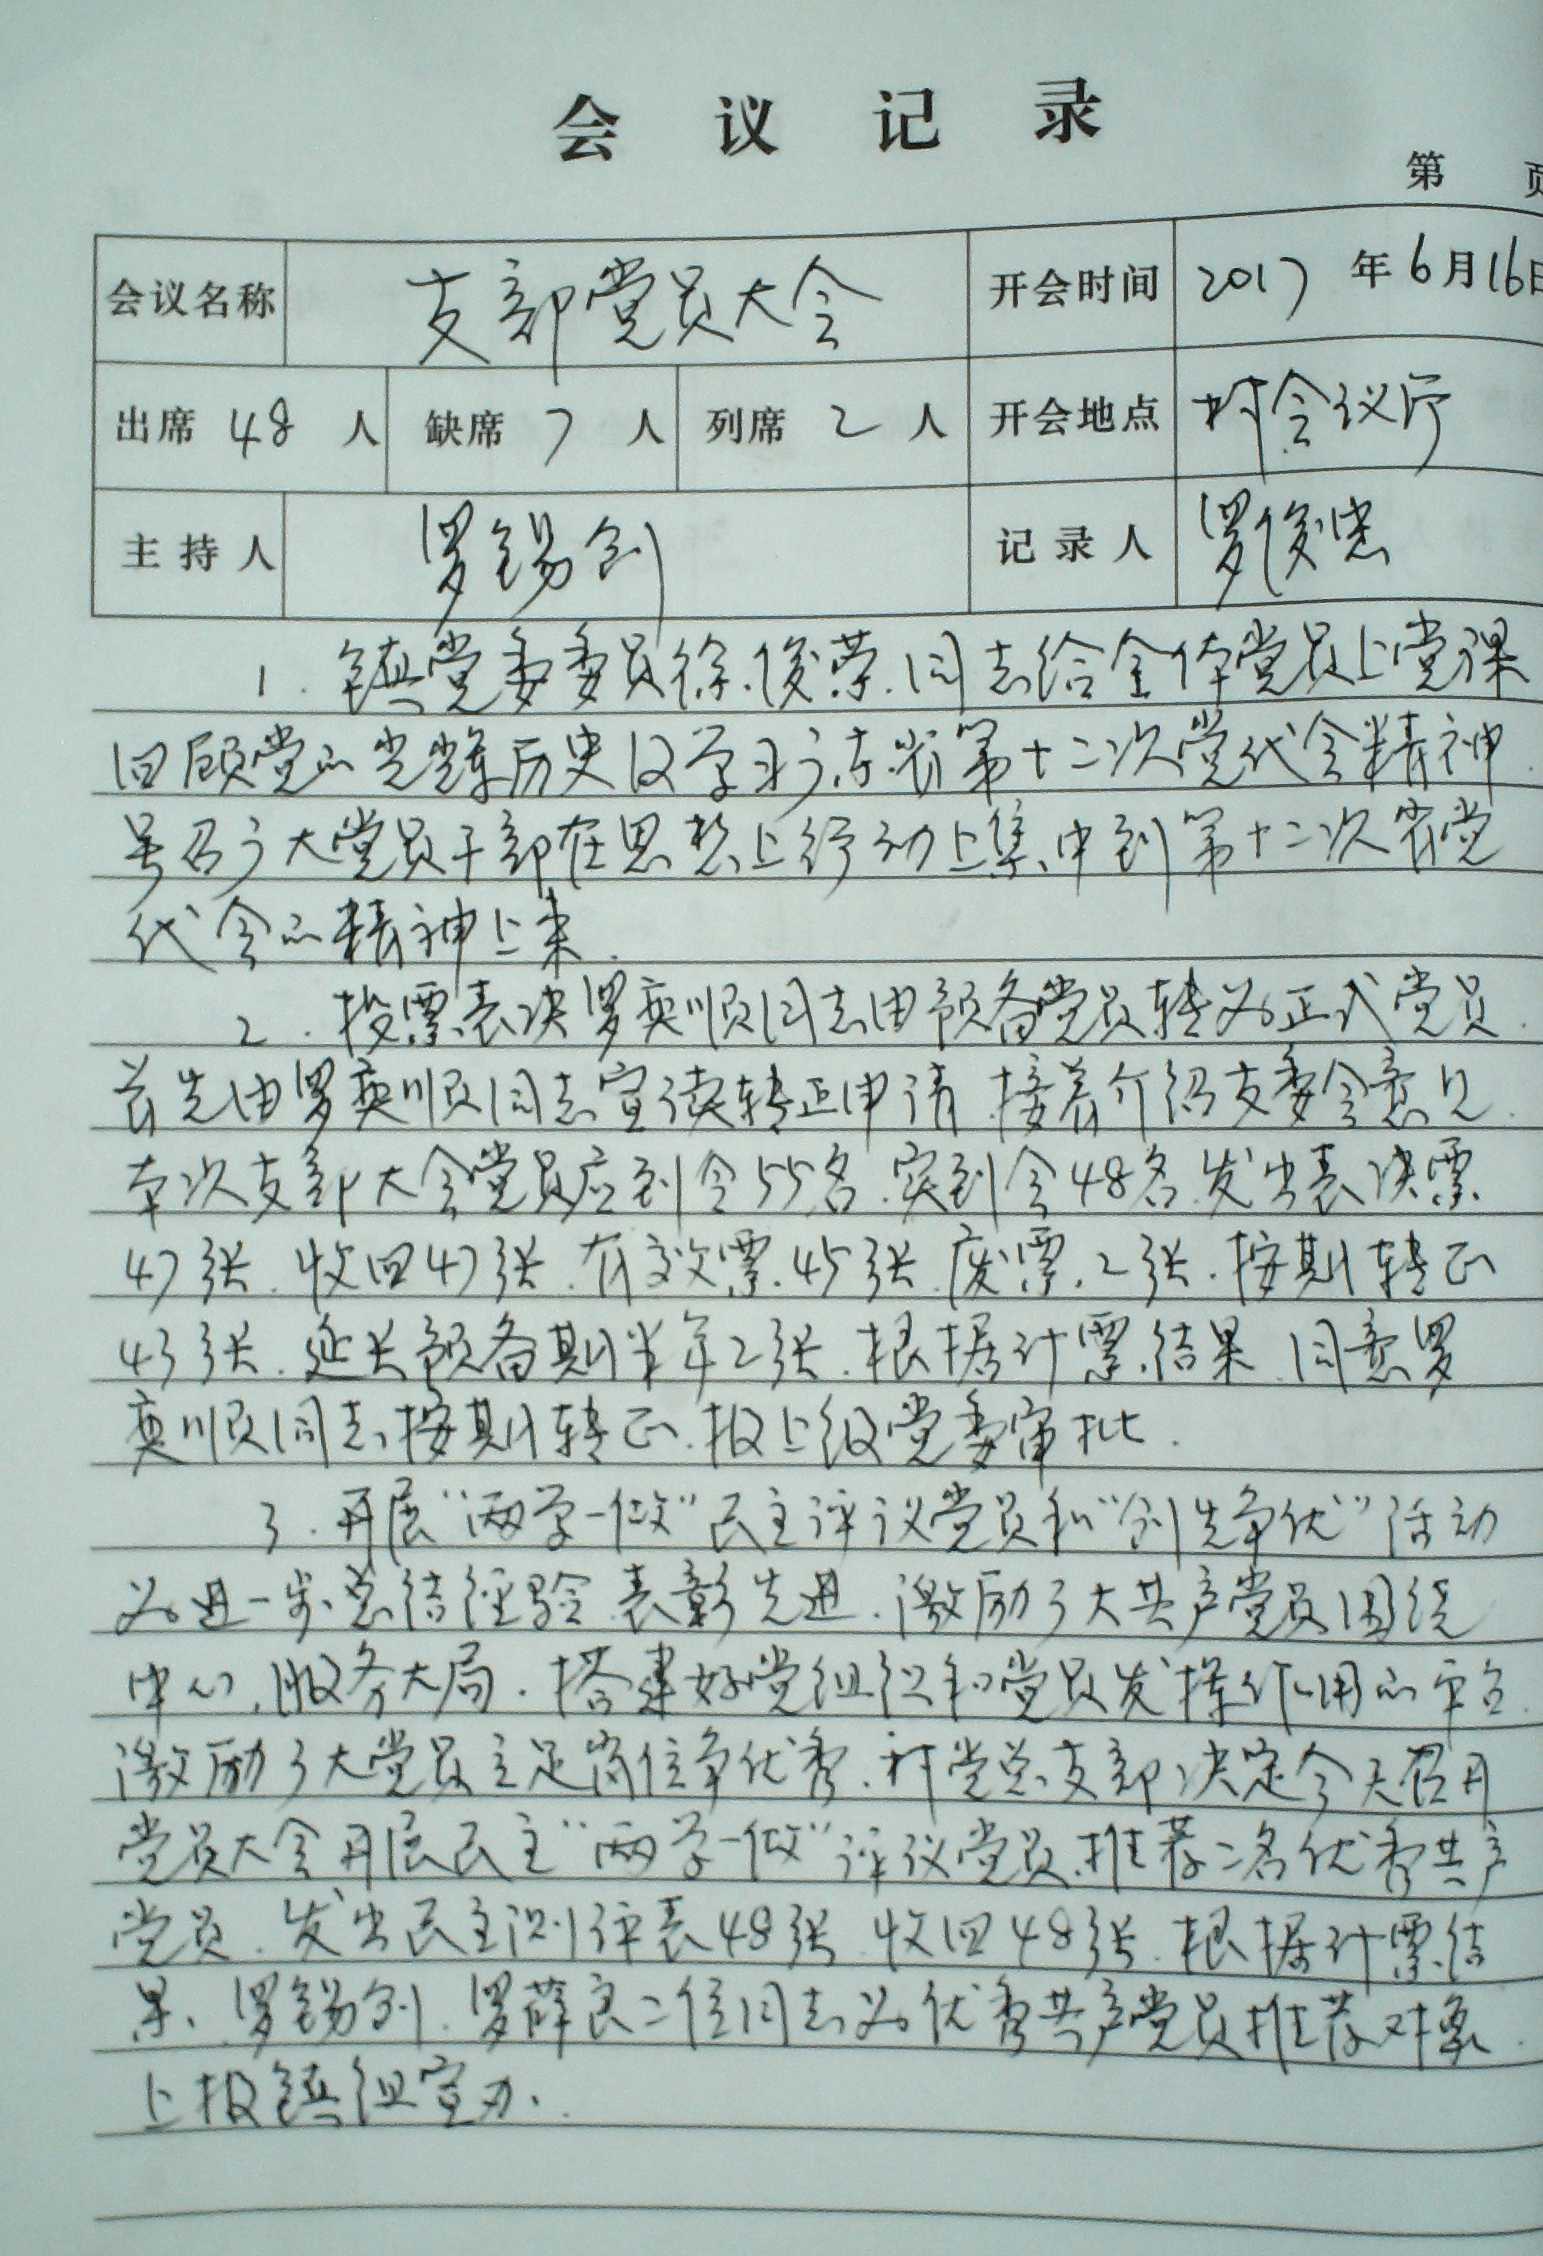 会议记录
第 页
会议名称 支部党员大会 开会时间 2017年6月16日
出席 48 人 缺席 7 人 列席 2 人 开会地点 村会议厅
主持人 罗锡创 记录人 罗俊忠
1. 镇党委委员徐俊荣同志给全体党员上党课
回顾党的光辉历史及学习广东省第十二次党代会精神.
号召广大党员干部在思想上行动上集中到第十二次省党
代会的精神上来.
2. 投票表决罗奕顺同志由预备党员转为正式党员.
首先由罗奕顺同志宣读转正申请.接着介绍支委会意见.
本次支部大会党员应到会55名.实到会48名.发出表决票
47张.收回47张.有效票45张.废票2张.按期转正
43张.延长预备期半年2张.根据计票结果.同意罗
奕顺同志按期转正.报上级党委审批.
3. 开展“两学一做”民主评议党员和“创先争优”活动
为进一步总结经验.表彰先进.激励广大共产党员围绕
中心,服务大局.搭建好党组织和党员发挥作用的平台.
激励广大党员立足岗位争优秀.村党总支部决定今天召开
党员大会开展民主“两学一做”评议党员.推荐二名优秀共产
党员.发出民主测评表48张.收回48张.根据计票结
果、罗锡创.罗薛良二位同志为优秀共产党员推荐对象.
上报镇组宣办.